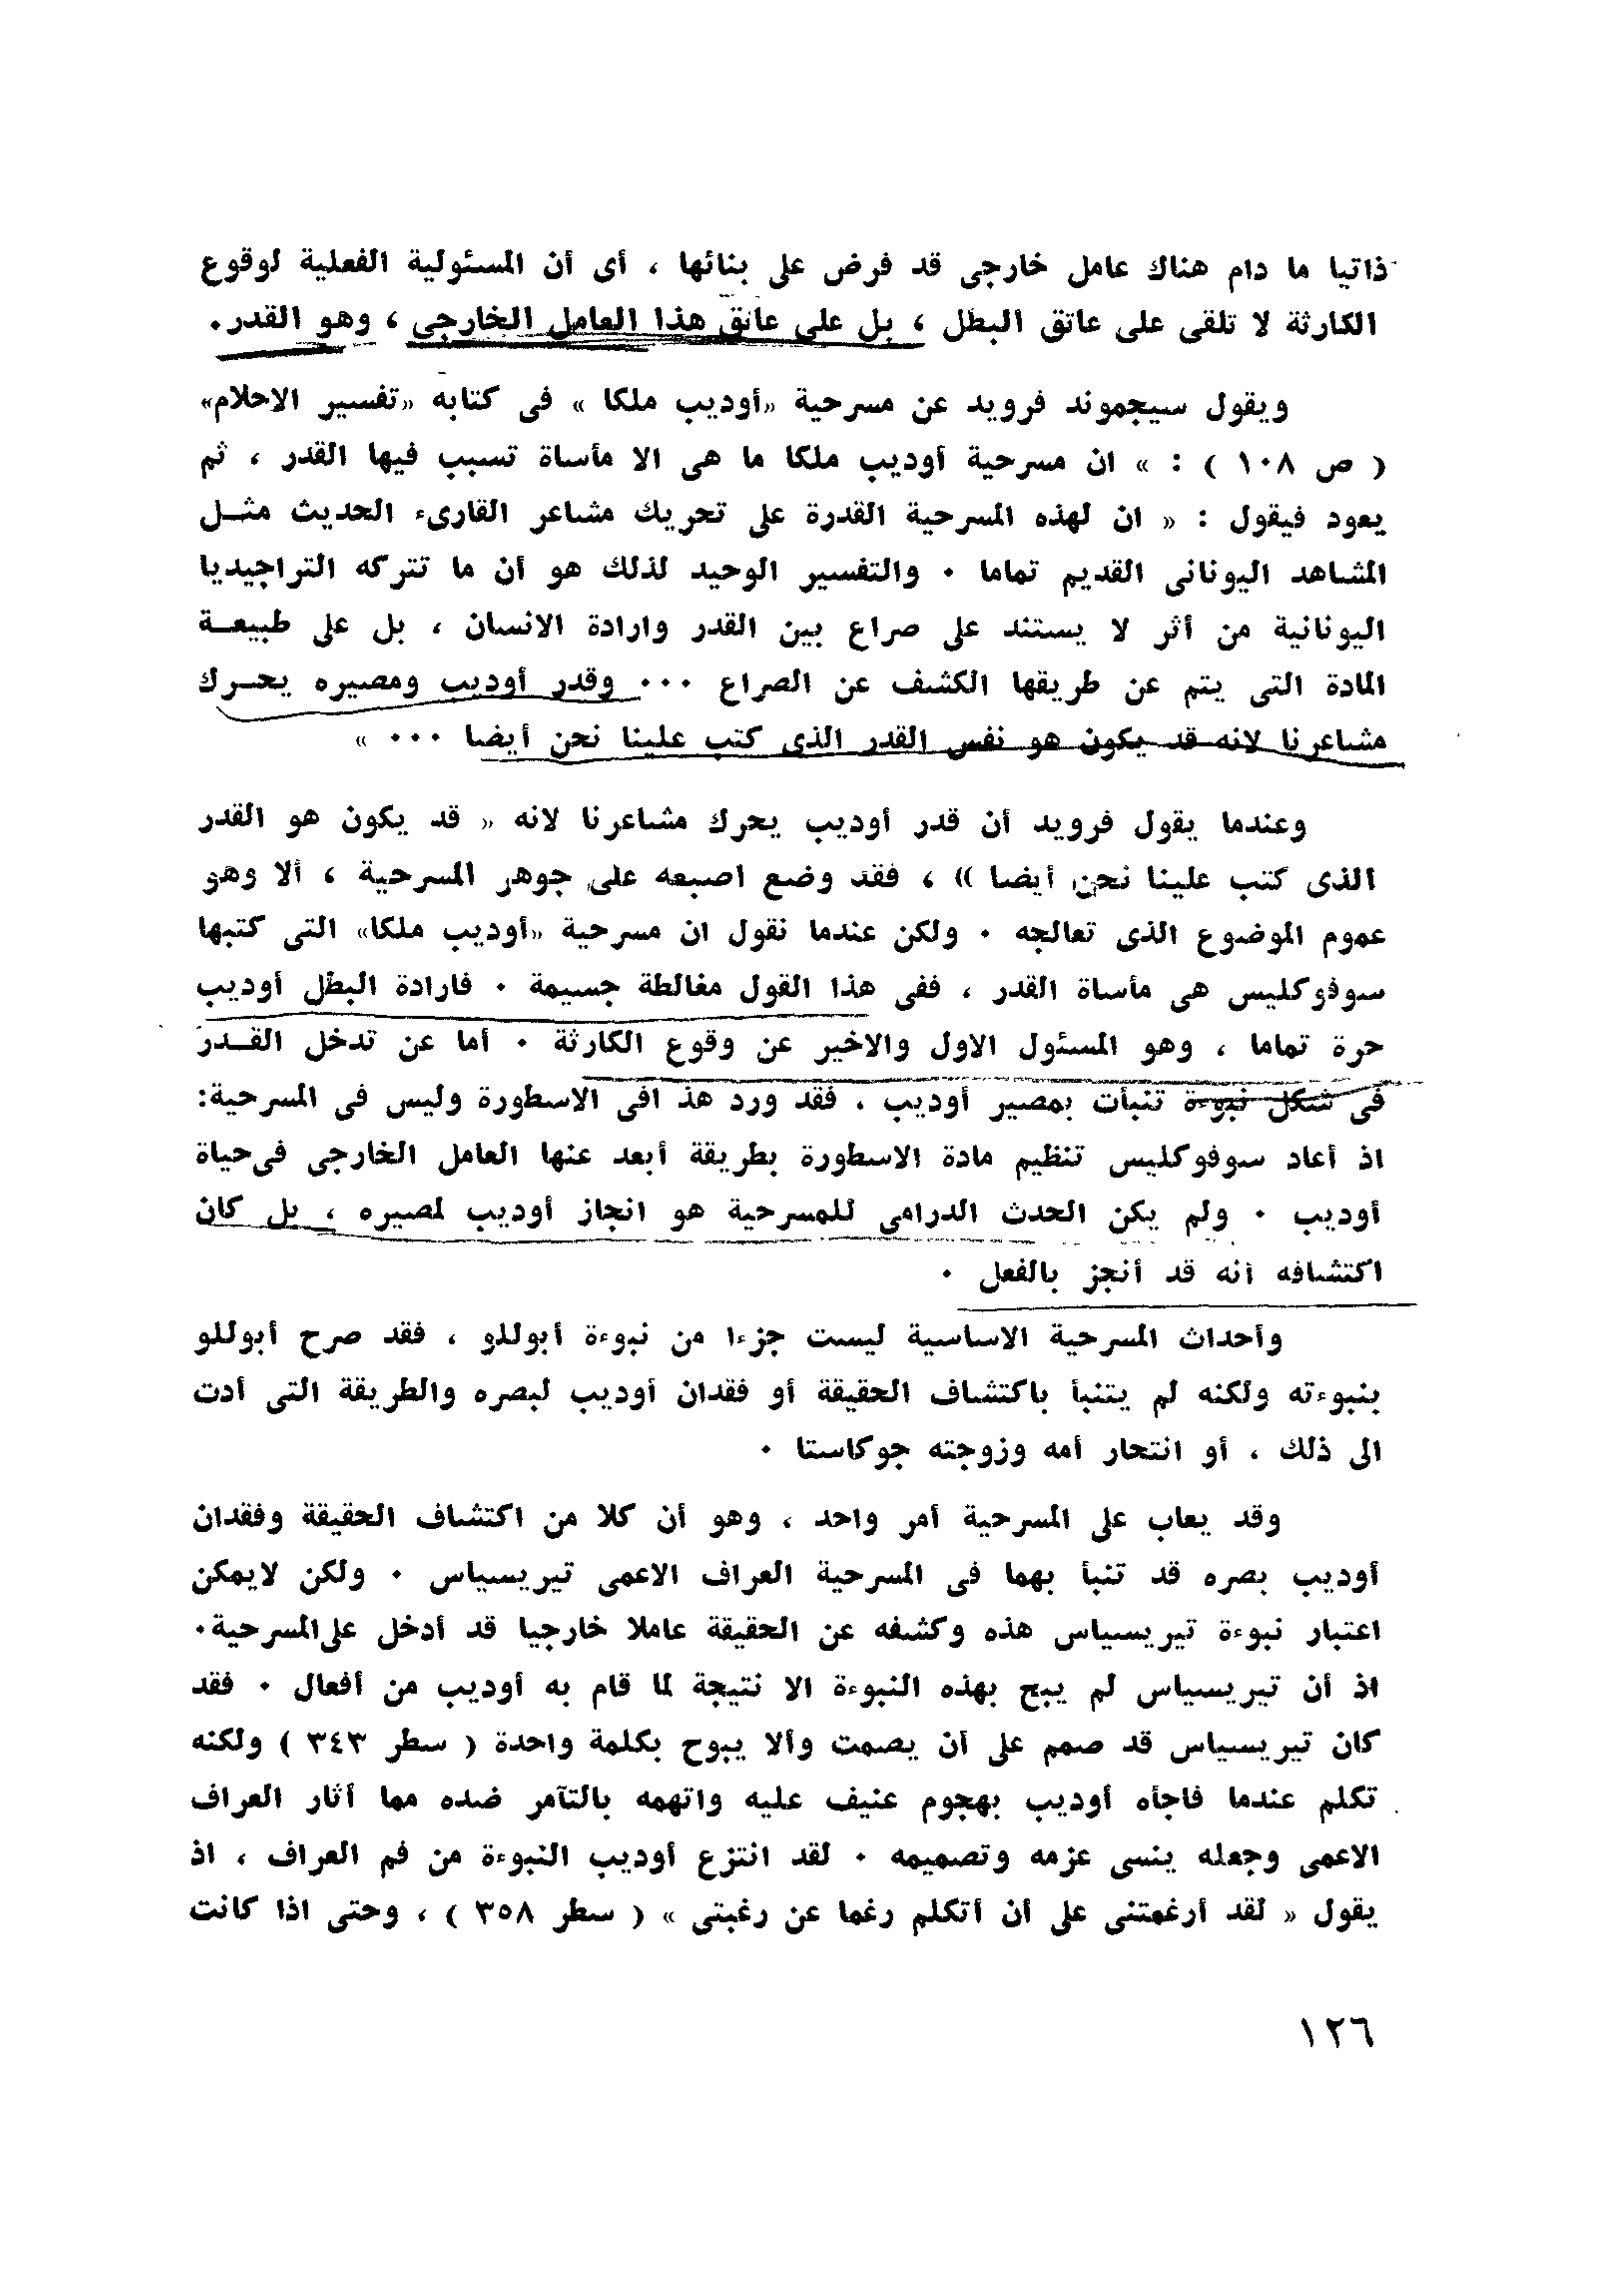 ذاتيا ما دام هناك عامل خارجى قد فرض على بنائها ، أى أن المسئولية الفعلية لوقوع
الكارثة لا تلقى على عاتق البطل ، بل على عاتق هذا العامل الخارجى ، وهو القدر.
ويقول سيجموند فرويد عن مسرحية «أوديب ملكا » فى كتابه «تفسير الاحلام»
( ص ١٠٨ ) : » ان مسرحية أوديب ملكا ما هى الا مأساة تسبب فيها القدر ، ثم
يعود فيقول : « ان لهذه المسرحية القدرة على تحريك مشاعر القارىء الحديث مثـل
المشاهد اليونانى القديم تماما ٠ والتفسير الوحيد لذلك هو أن ما تتركه التراجيديا
اليونانية من أثر لا يستند على صراع بين القدر وارادة الانسان ، بل على طبيعـة
المادة التى يتم عن طريقها الكشف عن الصراع ٠٠٠ وقدر أوديب ومصيره يحـرك
مشاعرنا لانه قد يكون هو نفس القدر الذى كتب علينا نحن أيضا ٠٠٠ »
وعندما يقول فرويد أن قدر أوديب يحرك مشاعرنا لانه « قد يكون هو القدر
الذى كتب علينا نحن أيضا )) ، فقد وضع اصبعه على جوهر المسرحية ، ألا وهو
عموم الموضوع الذى تعالجه ٠ ولكن عندما نقول ان مسرحية «أوديب ملكا» التى كتبها
سوفوكليس هى مأساة القدر ، ففى هذا القول مغالطة جسيمة ٠ فارادة البطل أوديب
حرة تماما ، وهو المسئول الاول والاخير عن وقوع الكارثة ٠ أما عن تدخل القـدر
فى شكل نبوءة تنبأت بمصير أوديب ، فقد ورد هذ افى الاسطورة وليس فى المسرحية:
اذ أعاد سوفوكليس تنظيم مادة الاسطورة بطريقة أبعد عنها العامل الخارجى فى حياة
أوديب ٠ ولم يكن الحدث الدرامى للمسرحية هو انجاز أوديب لمصيره ، بل كان
اكتشافه أنه قد أنجز بالفعل ٠
وأحداث المسرحية الاساسية ليست جزءا من نبوءة أبوللو ، فقد صرح أبوللو
بنبوءته ولكنه لم يتنبأ باكتشاف الحقيقة أو فقدان أوديب لبصره والطريقة التى أدت
الى ذلك ، أو انتحار أمه وزوجته جوكاستا ٠
وقد يعاب على المسرحية أمر واحد ، وهو أن كلا من اكتشاف الحقيقة وفقدان
أوديب بصره قد تنبأ بهما فى المسرحية العراف الاعمى تيريسياس ٠ ولكن لايمكن
اعتبار نبوءة تيريسياس هذه وكشفه عن الحقيقة عاملا خارجيا قد أدخل على المسرحية٠
اذ أن تيريسياس لم يبح بهذه النبوءة الا نتيجة لما قام به أوديب من أفعال ٠ فقد
كان تيريسياس قد صمم على أن يصمت وألا يبوح بكلمة واحدة ( سطر ٣٤٣ ) ولكنه
تكلم عندما فاجأه أوديب بهجوم عنيف عليه واتهمه بالتآمر ضده مما أثار العراف
الاعمى وجعله ينسى عزمه وتصميمه ٠ لقد انتزع أوديب النبوءة من فم العراف ، اذ
يقول « لقد أرغمتنى على أن أتكلم رغما عن رغبتى » ( سطر ٣٥٨ ) ، وحتى اذا كانت
١٢٦